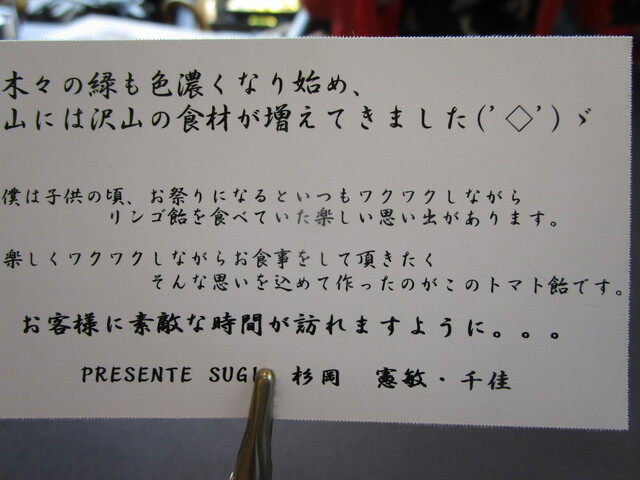 木々の緑も色濃くなり始め、
山には沢山の食材が増えてきました('◇')ゞ
僕は子供の頃、お祭りになるといつもワクワクしながら
リンゴ飴を食べていた楽しい思い出があります。
楽しくワクワクしながらお食事をして頂きたく
そんな思いを込めて作ったのがこのトマト飴です。
お客様に素敵な時間が訪れますように。。。
PRESENTE SUGI 杉岡 憲敏・千佳